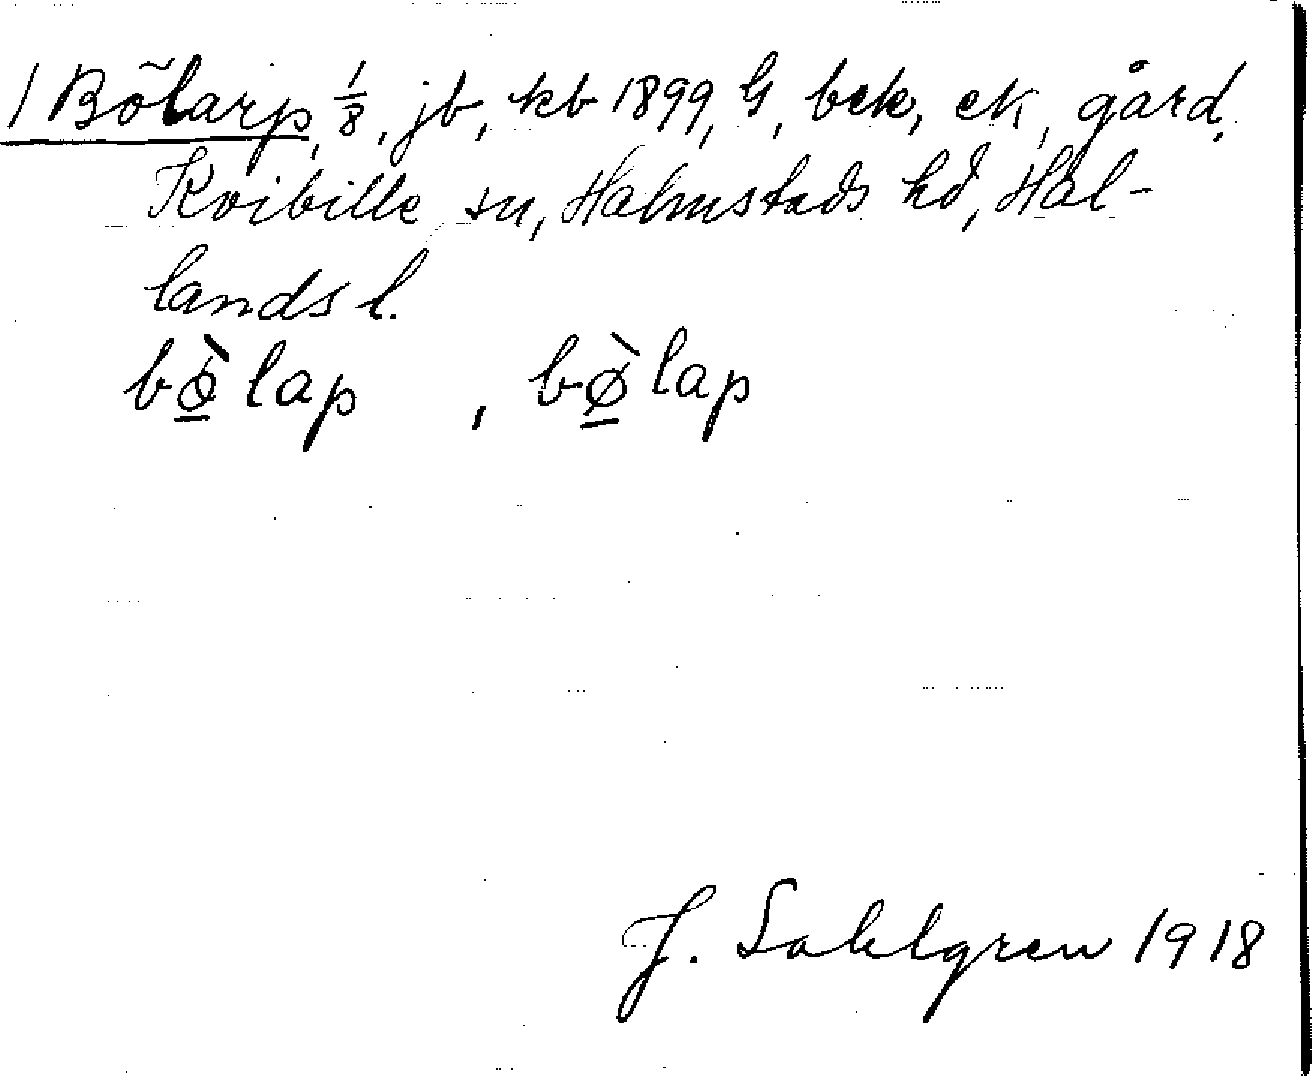 1 Bölarp, 1/8, jb, kb 1899, G, bek, ek, gård,
Kvibille sn, Halmstads hd, Hal-
lands l.
bø̱̀lap , bø̱̀lap
J. Sahlgren 1918